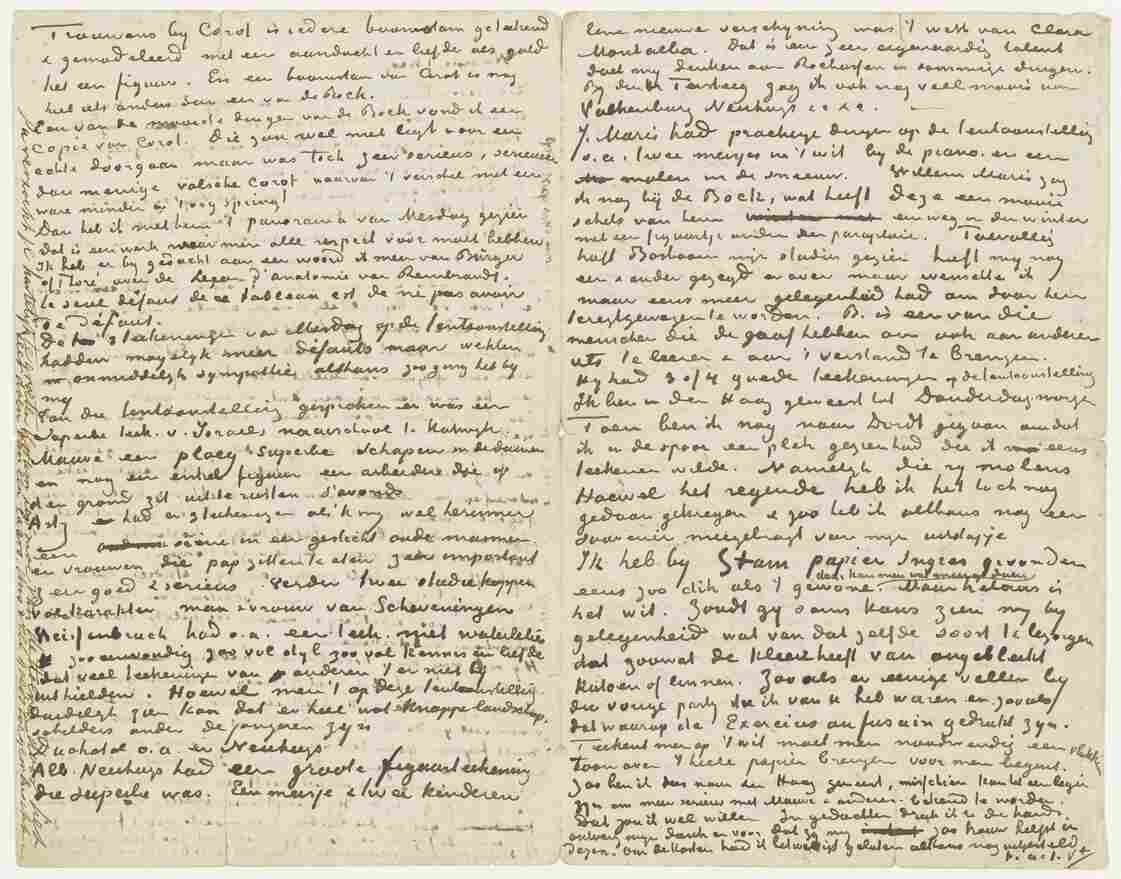 Trouwens by Corot is iedere boomstam geteekend
& gemodeleerd met een aandacht en liefde als gold
het een figuur. En een boomstam van Corot is nog
heel iets anders dan een van de Bock.
Een van de mooiste dingen van de Bock vond ik een
Copie van Corot. Die zou wel niet ligt voor een
echte doorgaan maar was toch zeer serieus, serieuser
dan menige valsche Corot waarvan 't verschil met een
ware minder in 't oog springt.
Dan heb ik met hem 't panorama van Mesdag gezien
dat is een werk waar men alle respect voor moet hebben
Ik heb er by gedacht aan een woord ik meen van Bürger
of Thoré over de Leçon d'anatomie van Rembrandt.
le seul défaut de ce tableau est de ne pas avoir
de défaut.
De 3 teekeningen van Mesdag op de tentoonstelling
hadden mogelyk meer défauts maar wekten
onmiddelyk sympathie althans zoo ging het by
my
Van die tentoonstelling gesproken er was een
superbe teek. v. Israels naaischool te Katwyk.
Mauve een ploeg superbe schapen in de duinen
en nog een enkel figuur een arbeider die op
den grond zit uitterusten s'avonds
Artz had er 3 teekeningen als ik my wel herinner
een scène in een gesticht oude mannen
en vrouwen die pap zitten te eten zeer important
zeer goed & serieus verder twee studiekoppen
vol karakter man & vrouw van Scheveningen
Weissenbruch had o.a. een teek. met waterlelies
zoo eenvoudig zoo vol styl zoo vol kennis en liefde
dat veel teekeningen van anderen 't er niet by
uithielden. Hoewel men 't op deze tentoonstelling
duidelyk zien kan dat er heel wat knappe landschap-
schilders onder de jongeren zyn
Duchatel o.a. en Neuhuys
Alb. Neuhuys had een groote figuurteekening
die superbe was. Een meisje & twee kinderen
Eene nieuwe verschyning was 't werk van Clara
Montalba. Dat is een zeer eigenaardig talent
doet my denken aan Rochussen in sommige dingen.
By den Hr Tersteeg zag ik ook nog veel moois van
Valkenburg Neuhuys &c &c.
J. Maris had prachtige dingen op de tentoonstelling
o.a. twee meisjes in 't wit by de piano. en een
molen in de sneeuw. Willem Maris zag
ik nog bij de Bock, wat heeft deze een mooie
schets van hem een weg in den winter
met een figuurtje onder een parapluie. Toevallig
heeft Bosboom mijn studies gezien heeft my nog
een & ander gezegd er over maar wenschte ik
maar eens meer gelegenheid had om door hem
terechtgewezen te worden. B. is een van die
menschen die de gaaf hebben om ook aan anderen
iets te leeren & aan 't verstand te brengen.
Hy had 3 of 4 goede teekeningen op de tentoonstelling
Ik ben in den Haag geweest tot Donderdag morgen
Toen ben ik nog naar Dordt gegaan omdat
ik in de spoor een plek gezien had die ik eens
teekenen wilde. Namelyk die ry molens
Hoewel het regende heb ik het toch nog
gedaan gekregen & zoo heb ik althans nog een
souvenir meegebragt van myn uitstapje.
Ik heb by Stam papier Ingres gevonden
daar kan men wat mee op doen
eens zoo dik als 't gewone. Maar helaas is
het wit. Zoudt gy soms kans zien my by
gelegenheid wat van dat zelfde soort te bezorgen
dat zoowat de kleur heeft van ongebleekt
katoen of linnen. Zooals er eenige vellen by
die vorige party die ik van u heb waren en zooals
dat waarop de Exercices au fusain gedrukt zyn.
Teekent men op 't wit moet men noodwendig een vlakken
toon over 't heele papier brengen voor men begint.
Zoo ben ik dan naar den Haag geweest, misschien kan het een begin
zyn om meer serieus met Mauve & anderen bekend te worden.
Dat zou ik wel willen. In gedachten druk ik u de hand.
ontvang myn dank er voor dat gy my zoo trouw helpt in
dezen. Om de kosten had ik het wel ligt gelaten althans nog uitgesteld
t. à t. Vt